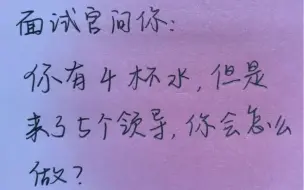 面试官问你:
你有4杯水,但是
来了5个领导,你会怎么
做?